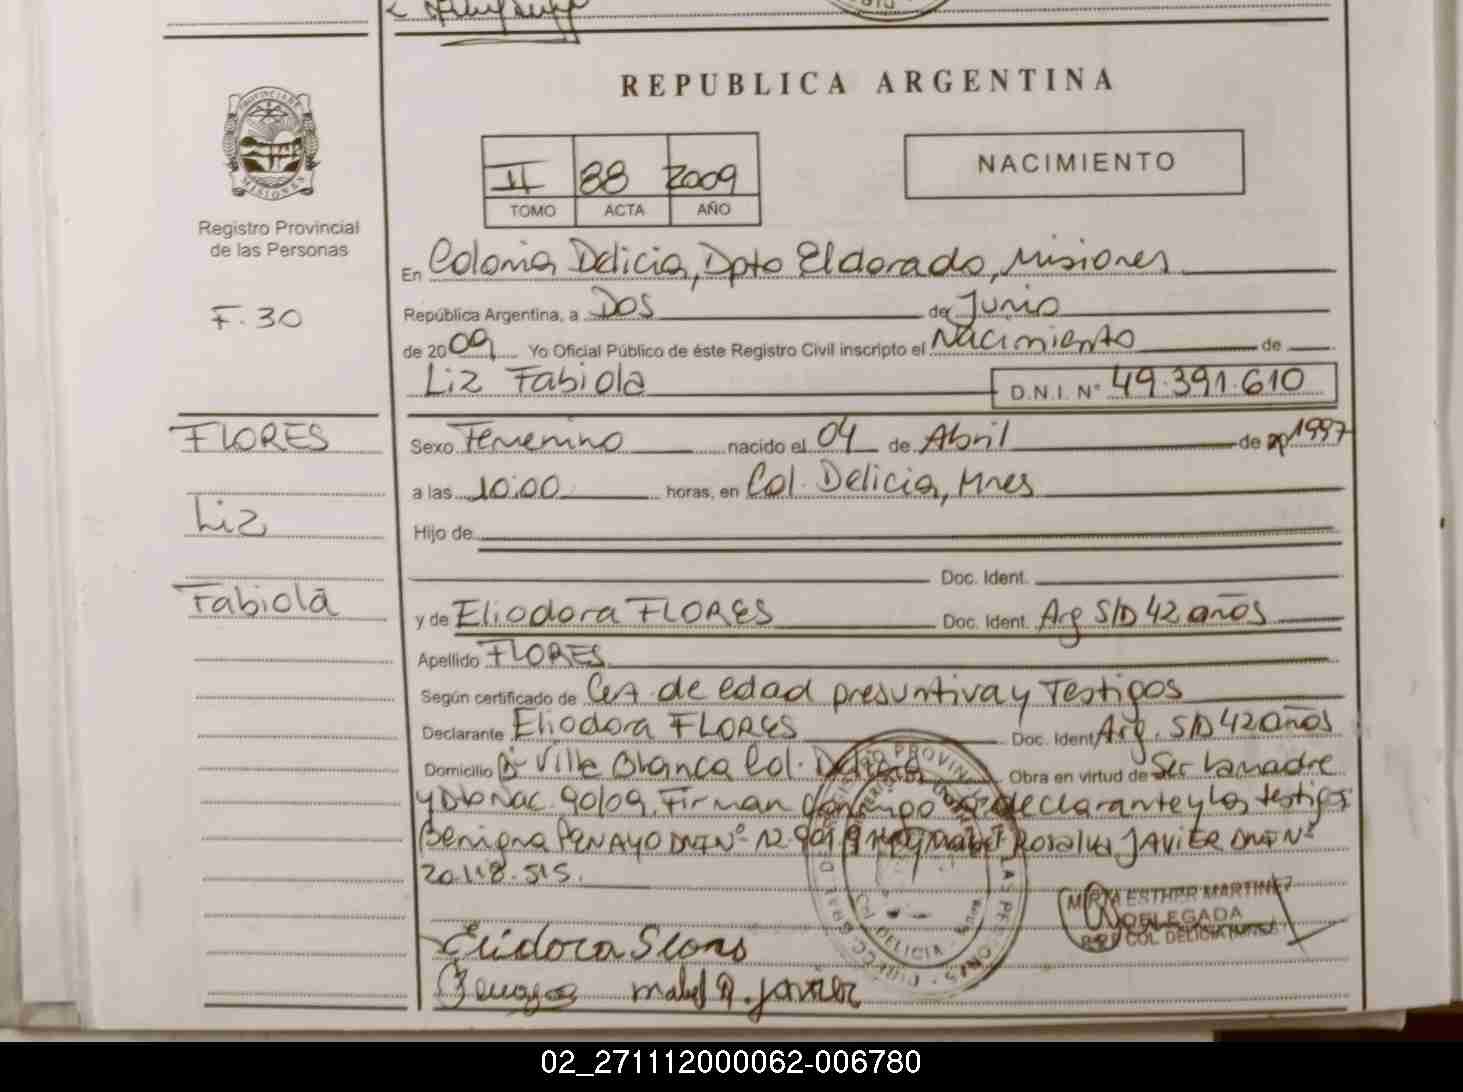 REPUBLICA ARGENTINA
PROVINCIA DE MISIONES
Registro Provincial
de las Personas
F. 30
II 88 2009
TOMO ACTA AÑO
NACIMIENTO
En Colonia Delicia, Dpto Eldorado, Misiones
República Argentina, a Dos de Junio
de 2009 Yo Oficial Público de éste Registro Civil inscripto el Nacimiento de
Liz Fabiola D.N.I. N° 49.391.610
FLORES
Liz
Fabiola
Sexo Femenino nacido el 04 de Abril de 1997
a las 10:00 horas, en Col. Delicia, Mnes
Hijo de
Doc. Ident.
y de Eliodora FLORES Doc. Ident. Arg S/D 42 años
Apellido FLORES
Según certificado de Cert. de edad presuntiva y Testigos
Declarante Eliodora FLORES Doc. Ident. Arg. S/D 42 años
Domicilio B° Villa Blanca Col. Delicia Obra en virtud de Ser la madre
y Dto Nac. 90/09. Firman conmigo declarante y los testigos
Benigna PENAYO DNI N° 12. Mabel Rosalva JAVIER DNI N°
20.118.515.
MIRTA ESTHER MARTINEZ
DELEGADA
COL DELICIA
COL. DELICIA
Eliodora
mabel R. javier
02_271112000062-006780